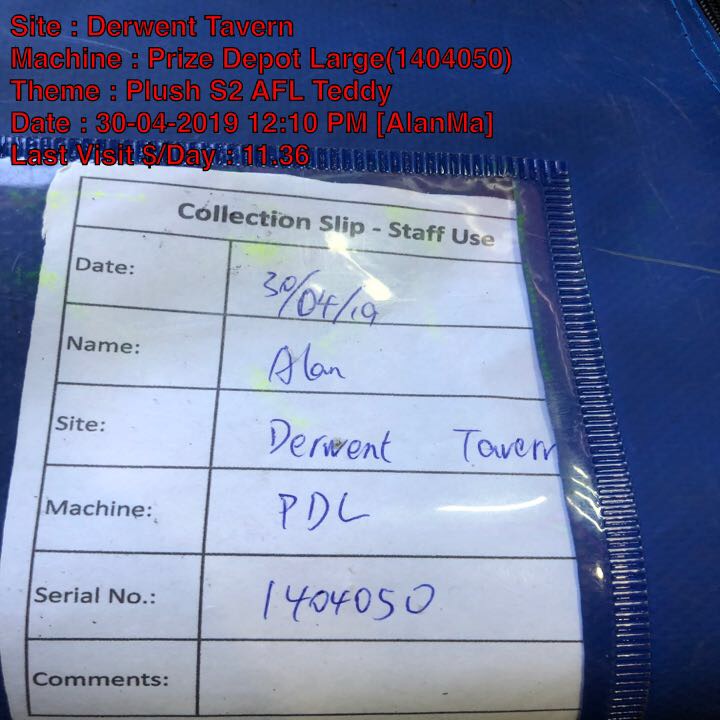 Site : Derwent Tavern
Machine : Prize Depot Large(1404050)
Theme : Plush S2 AFL Teddy
Date : 30-04-2019 12:10 PM [AlanMa]
Last Visit $/Day : 11.36
Collection Slip - Staff Use
Date: 30/04/19
Name: Alan
Site: Derwent Tavern
Machine: PDL
Serial No.: 1404050
Comments: